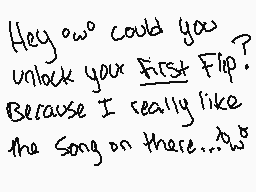 Hey owo could you
unlock your First Flip?
Because I really like
the song on there...owo